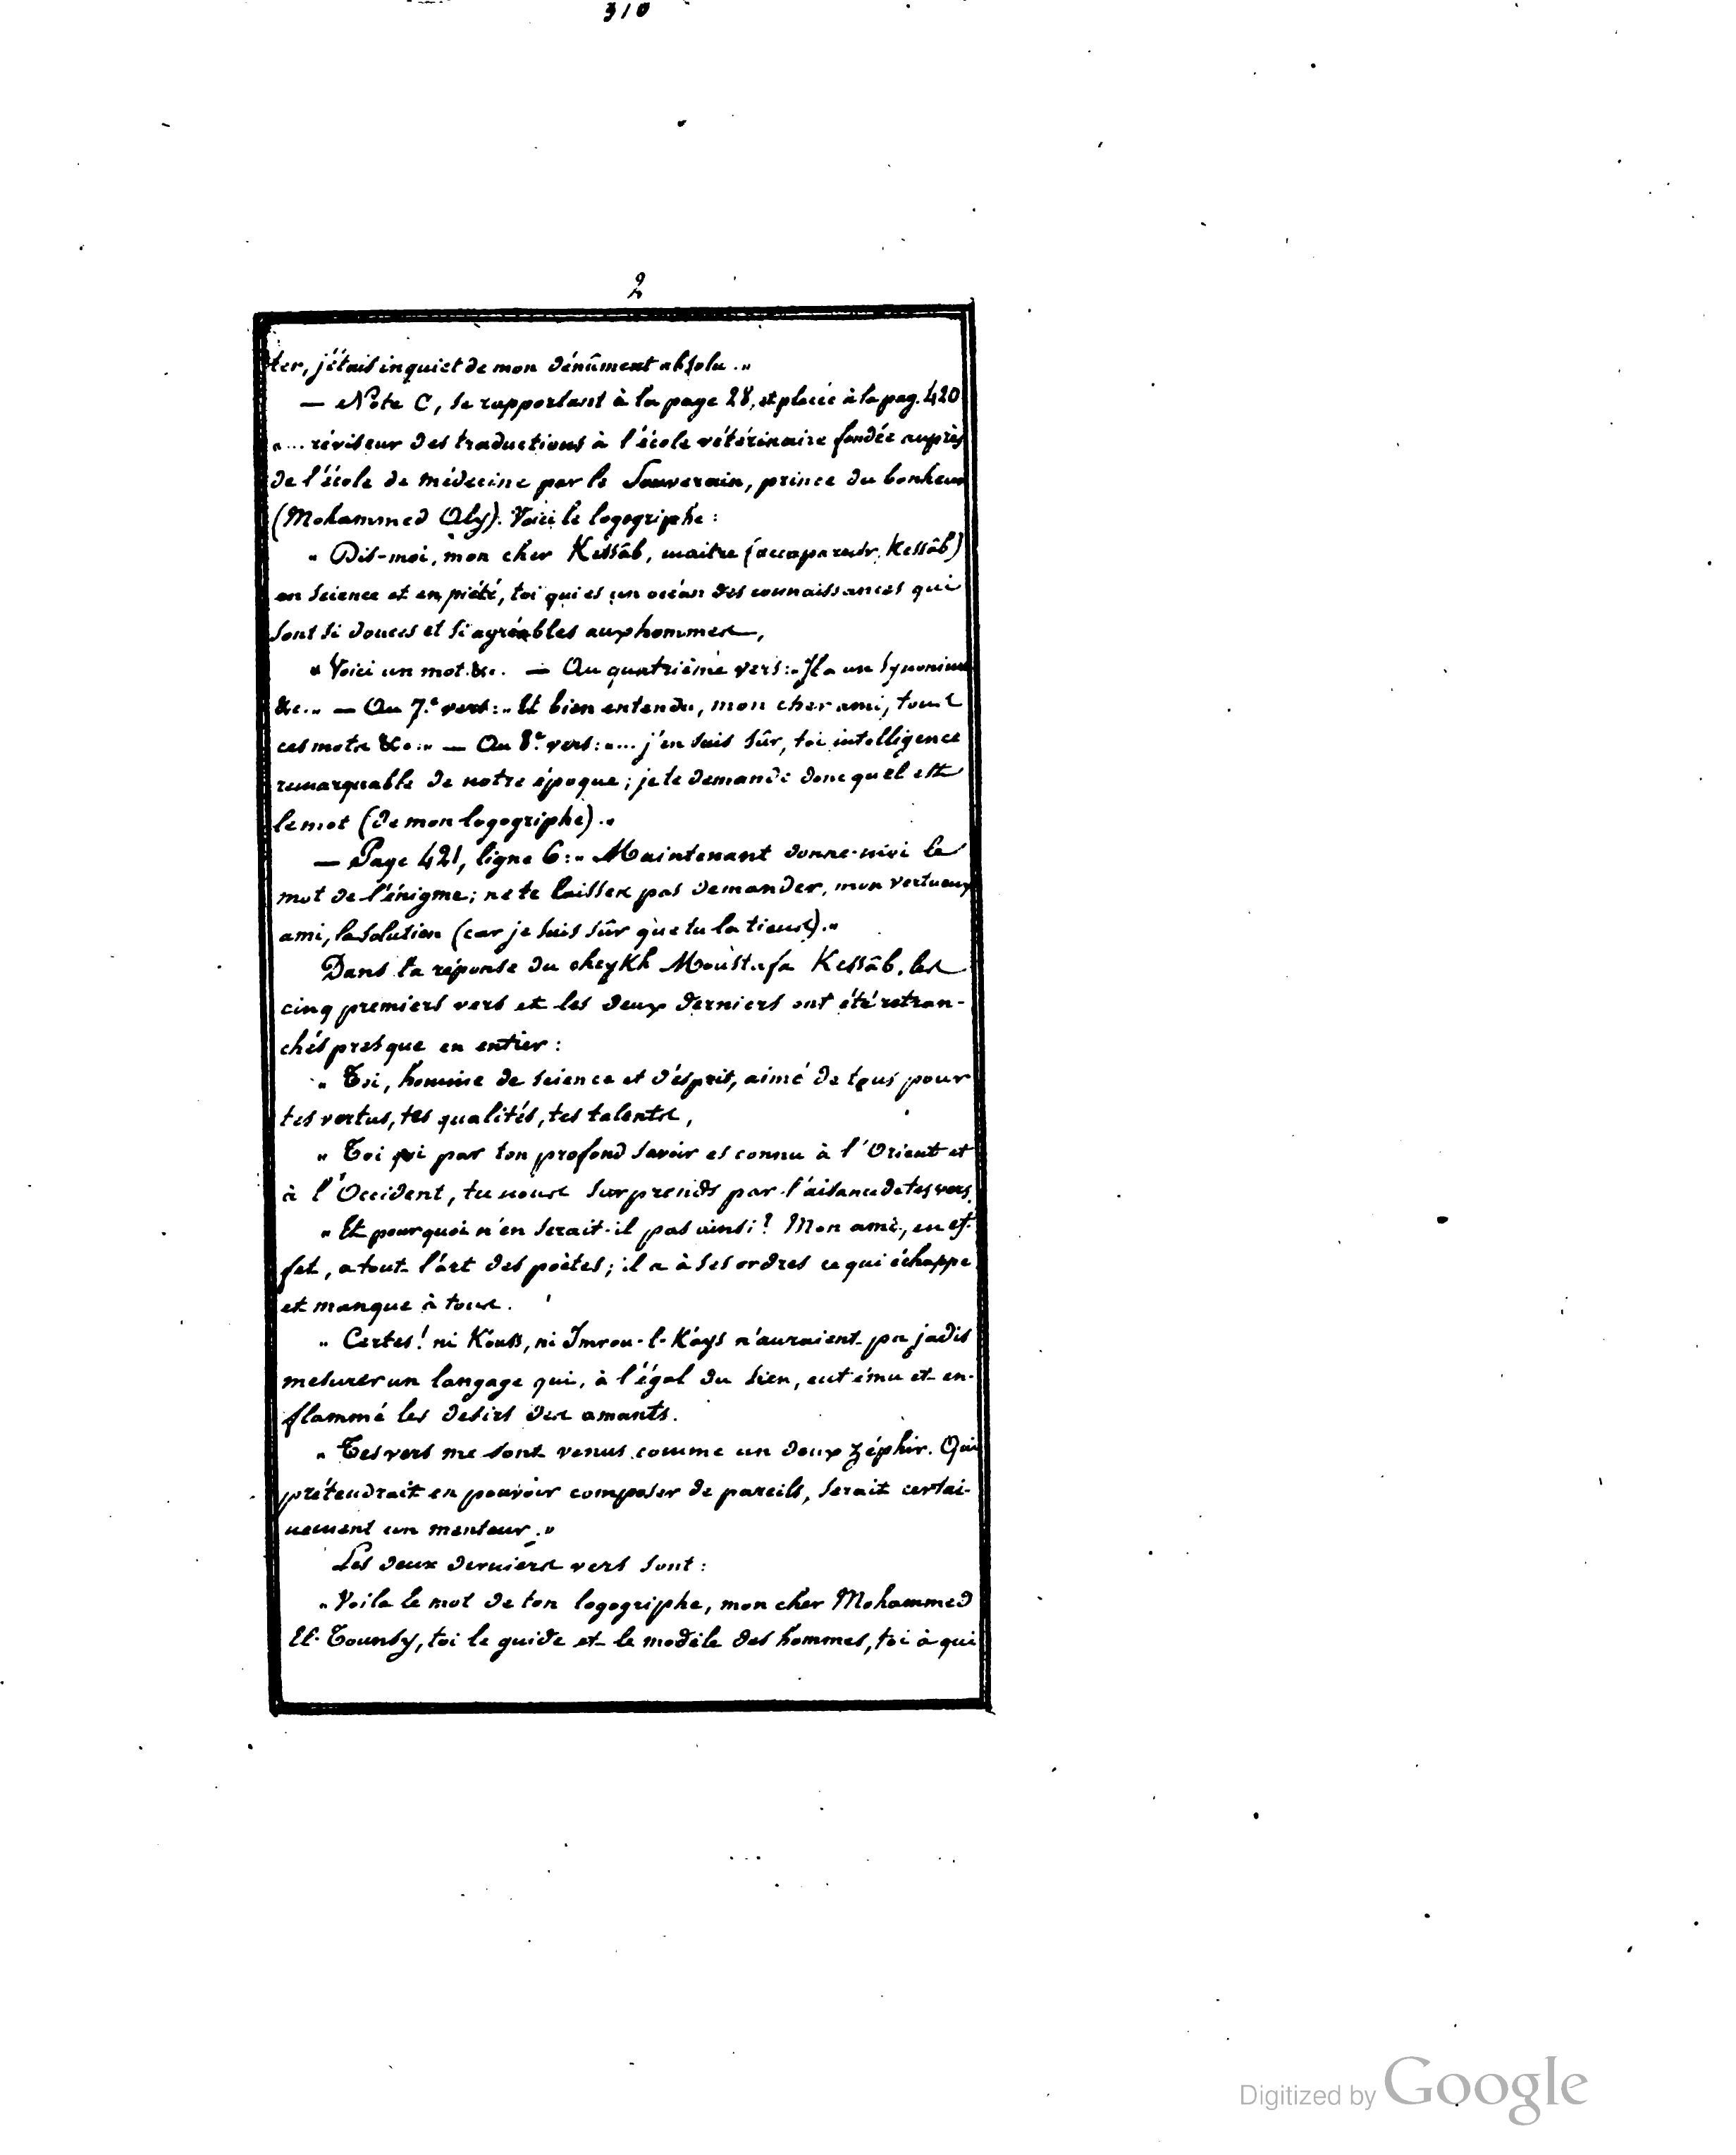 310
2
ter, j'étais inquiet de mon dénûment absolu."
— Note C, se rapportant à la page 28, et placée à la pag. 420
"... réviseur des traductions à l'école vétérinaire fondée auprès
de l'école de médecine par le Souverain, prince du bonheur
(Mohammed Aly). Voici le logogriphe :
" Dis-moi, mon cher Kessâb, maître (accapareur, Kessâb)
en science et en piété, toi qui es un océan des connaissances qui
sont si douces et si agréables aux hommes,
" Voici un mot &c. — Au quatrième vers: "Il a un synonime
&c." — Au 7.e vers: "Et bien entendu, mon cher ami, tous
ces mots &c." — Au 8.e vers: "... j'en suis sûr, toi intelligence
remarquable de notre époque; je te demande donc quel est
le mot (de mon logogriphe)."
— Page 421, ligne 6: "Maintenant donne-moi le
mot de l'énigme; ne te laisses pas demander, mon vertueux
ami, la solution (car je suis sûr que tu la tiens)."
Dans la réponse du cheykh Moustafa Kessâb, les
cinq premiers vers et les deux derniers ont été retran-
chés presque en entier :
" Toi, homme de science et d'esprit, aimé de tous pour
tes vertus, tes qualités, tes talents,
" Toi qui par ton profond savoir es connu à l'Orient et
à l'Occident, tu nous surprends par l'aisance de tes vers.
" Et pourquoi n'en serait-il pas ainsi? Mon ami, en ef-
fet, a tout l'art des poètes; il a à ses ordres ce qui échappe
et manque à tous.
" Certes! ni Kouss, ni Imrou-l-Kays n'auraient pu jadis
mesurer un langage qui, à l'égal du sien, eut ému et en-
flammé les desirs des amants.
" Tes vers me sont venus comme un doux zéphir. Qui
prétendrait en pouvoir composer de pareils, serait certai-
nement un menteur."
Les deux derniers vers sont :
" Voila le mot de ton logogriphe, mon cher Mohammed
El-Tounsy, toi le guide et le modèle des hommes, toi à qui
Digitized by Google